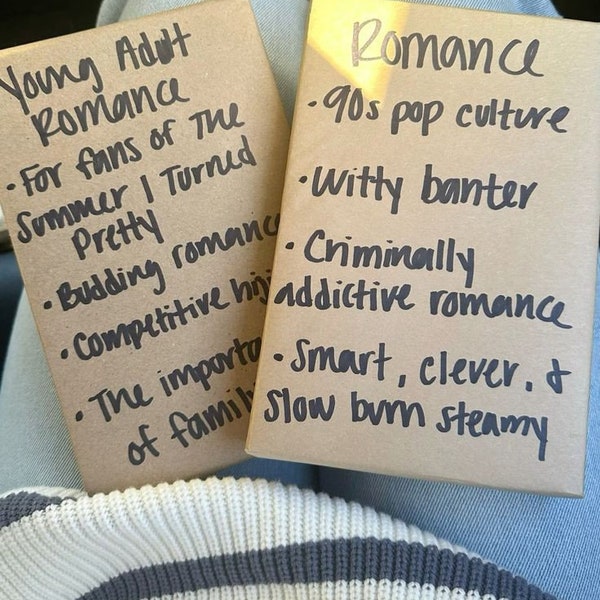 Young Adult
Romance
• For fans of The
Summer I Turned
Pretty
• Budding romance
• Competitive
• The
of family
Romance
• 90s pop culture
• Witty banter
• Criminally
addictive romance
• Smart, clever, &
slow burn steamy